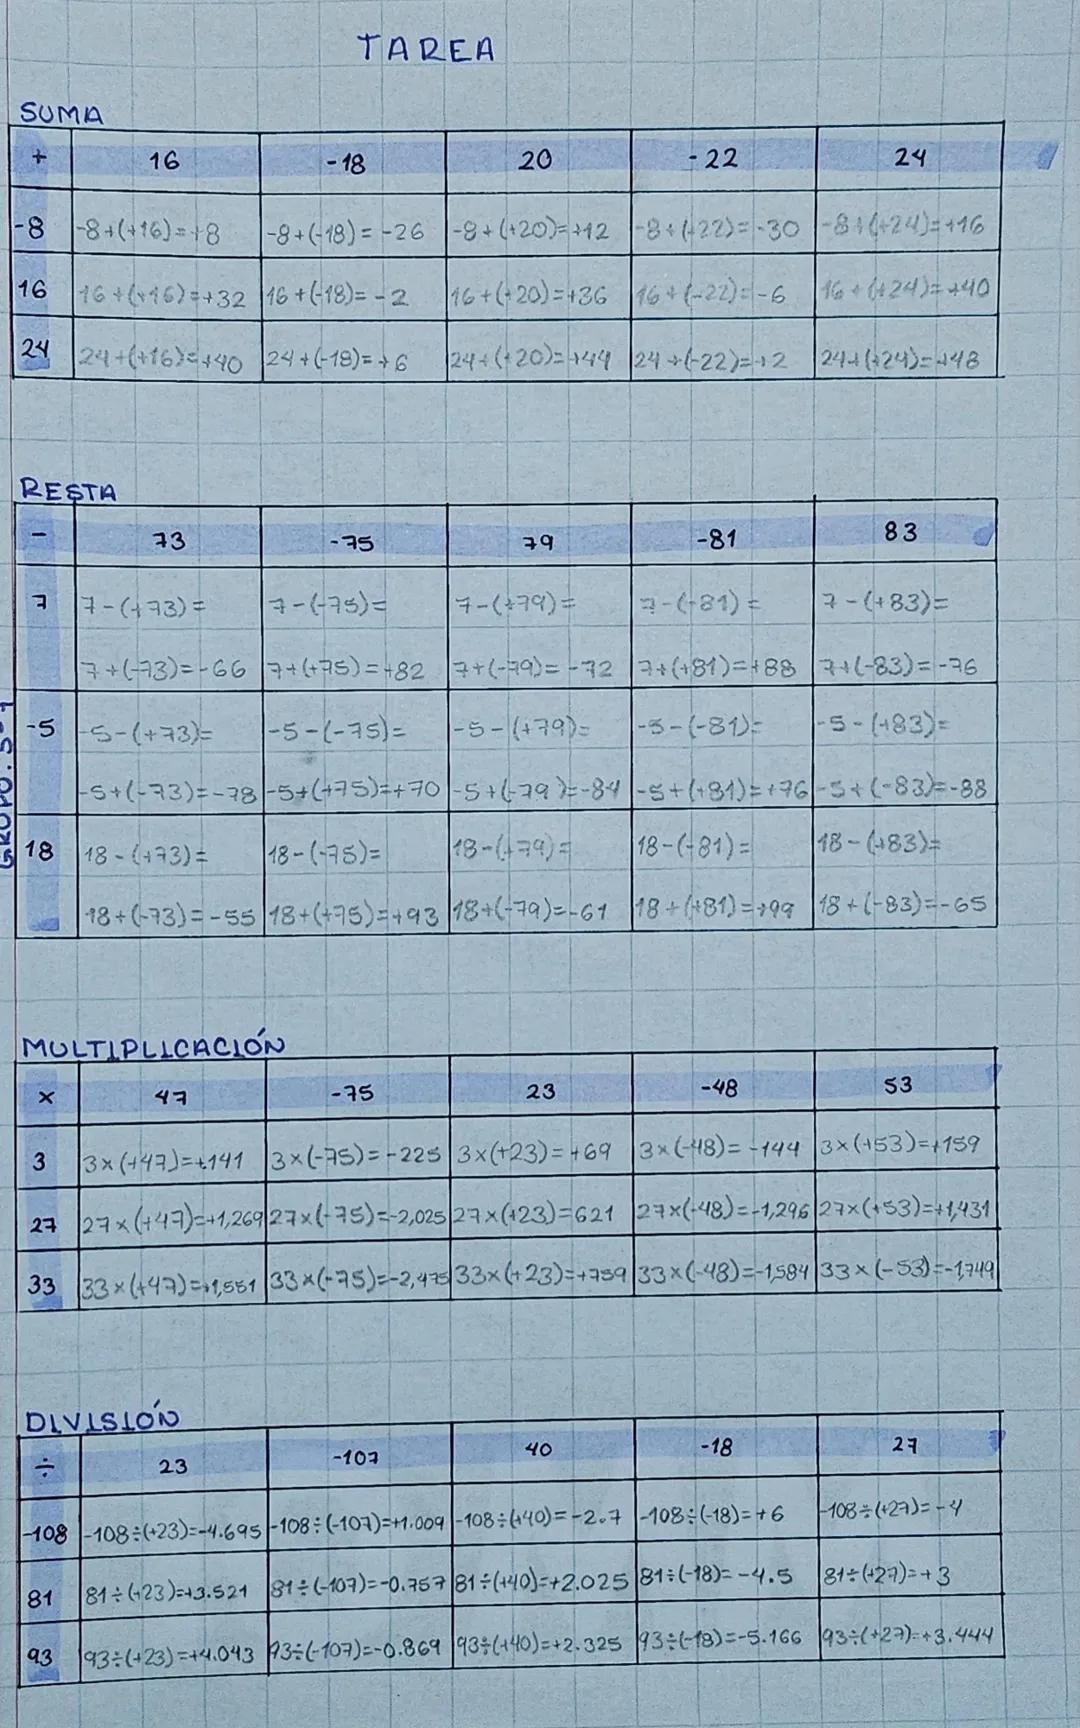 TAREA
SUMA
+ 16 -18 20 -22 24
-8 -8+(+16)=+8 -8+(-18)=-26 -8+(+20)=+12 -8+(-22)=-30 -8+(+24)=+16
16 16+(+16)=+32 16+(-18)=-2 16+(+20)=+36 16+(-22)=-6 16+(+24)=+40
24 24+(+16)=+40 24+(-18)=+6 24+(+20)=+44 24+(-22)=+2 24+(+24)=+48
RESTA
- 73 -75 79 -81 83
7 7-(+73)= 7-(-75)= 7-(+79)= 7-(-81)= 7-(+83)=
7+(-73)=-66 7+(+75)=+82 7+(-79)=-72 7+(+81)=+88 7+(-83)=-76
-5 -5-(+73)= -5-(-75)= -5-(+79)= -5-(-81)= -5-(+83)=
-5+(-73)=-78 -5+(+75)=+70 -5+(-79)=-84 -5+(+81)=+76 -5+(-83)=-88
18 18-(+73)= 18-(-75)= 18-(+79)= 18-(-81)= 18-(+83)=
18+(-73)=-55 18+(+75)=+93 18+(-79)=-61 18+(+81)=+99 18+(-83)=-65
MULTIPLICACIÓN
× 47 -75 23 -48 53
3 3×(+47)=+141 3×(-75)=-225 3×(+23)=+69 3×(-48)=-144 3×(+53)=+159
27 27×(+47)=+1,269 27×(-75)=-2,025 27×(+23)=621 27×(-48)=-1,296 27×(+53)=+1,431
33 33×(+47)=+1,551 33×(-75)=-2,475 33×(+23)=+759 33×(-48)=-1,584 33×(-53)=-1,749
DIVISIÓN
÷ 23 -107 40 -18 27
-108 -108÷(+23)=-4.695 -108÷(-107)=+1.009 -108÷(+40)=-2.7 -108÷(-18)=+6 -108÷(+27)=-4
81 81÷(+23)=+3.521 81÷(-107)=-0.757 81÷(+40)=+2.025 81÷(-18)=-4.5 81÷(+27)=+3
93 93÷(+23)=+4.043 93÷(-107)=-0.869 93÷(+40)=+2.325 93÷(-18)=-5.166 93÷(+27)=+3.444